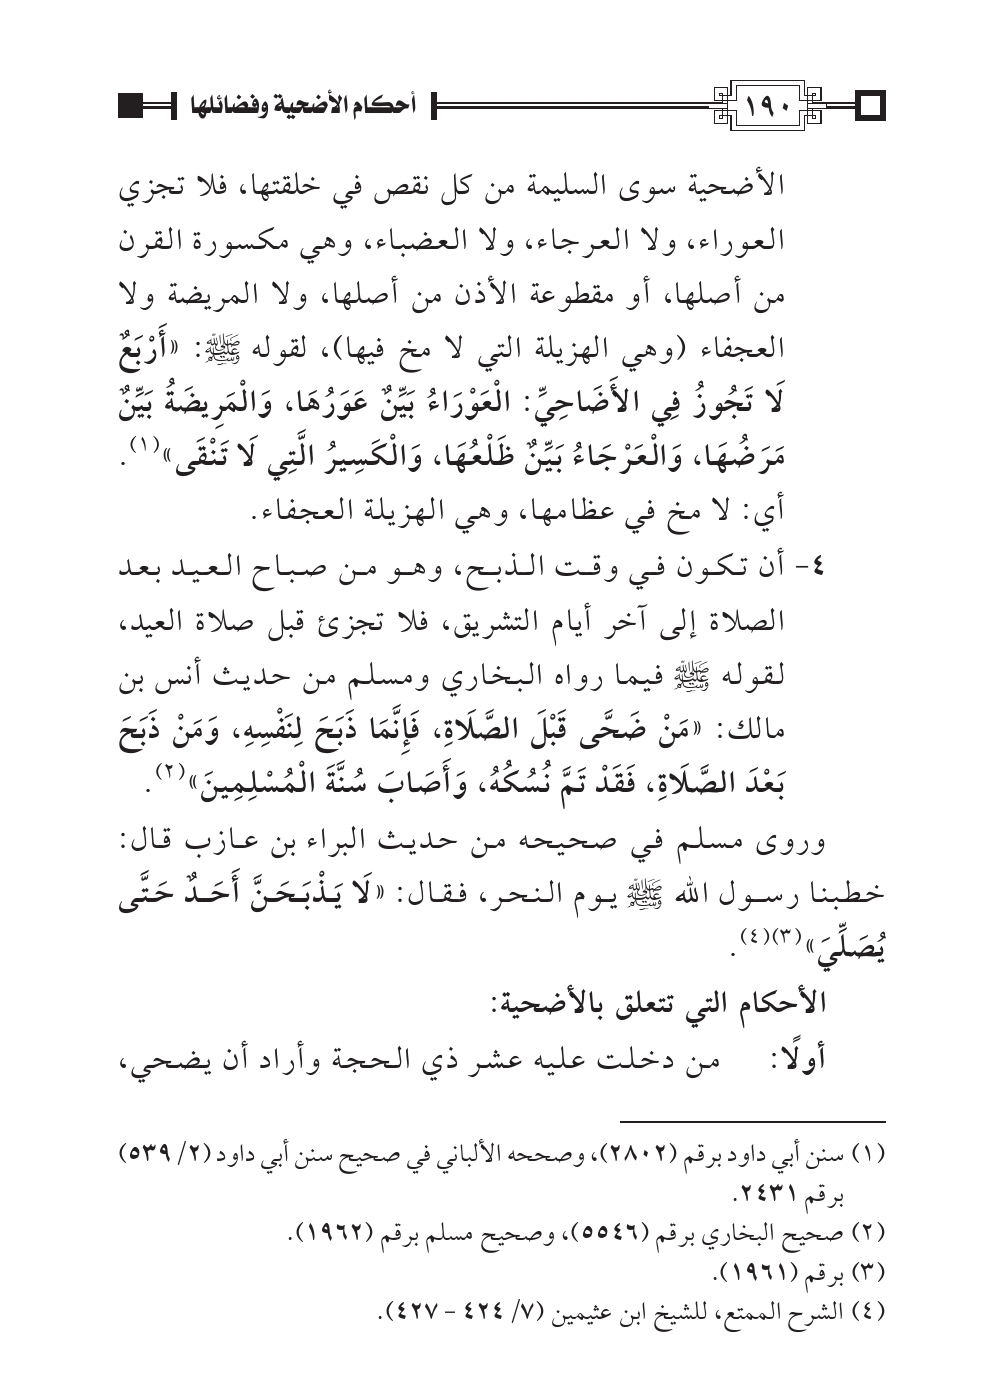 ١٩٠ أحكام الأضحية وفضائلها
الأضحية سوى السليمة من كل نقص في خلقتها، فلا تجزي
العوراء، ولا العرجاء، ولا العضباء، وهي مكسورة القرن
من أصلها، أو مقطوعة الأذن من أصلها، ولا المريضة ولا
العجفاء (وهي الهزيلة التي لا مخ فيها)، لقوله ﷺ: «أَرْبَعٌ
لَا تَجُوزُ فِي الأَضَاحِيِّ: الْعَوْرَاءُ بَيِّنٌ عَوَرُهَا، وَالْمَرِيضَةُ بَيِّنٌ
مَرَضُهَا، وَالْعَرْجَاءُ بَيِّنٌ ظَلْعُهَا، وَالْكَسِيرُ الَّتِي لَا تَنْقَى»(١).
أي: لا مخ في عظامها، وهي الهزيلة العجفاء.
٤- أن تكون في وقت الذبح، وهو من صباح العيد بعد
الصلاة إلى آخر أيام التشريق، فلا تجزئ قبل صلاة العيد،
لقوله ﷺ فيما رواه البخاري ومسلم من حديث أنس بن
مالك: «مَنْ ضَحَّى قَبْلَ الصَّلَاةِ، فَإِنَّمَا ذَبَحَ لِنَفْسِهِ، وَمَنْ ذَبَحَ
بَعْدَ الصَّلَاةِ، فَقَدْ تَمَّ نُسُكُهُ، وَأَصَابَ سُنَّةَ الْمُسْلِمِينَ»(٢).
وروى مسلم في صحيحه من حديث البراء بن عازب قال:
خطبنا رسول الله ﷺ يوم النحر، فقال: «لَا يَذْبَحَنَّ أَحَدٌ حَتَّى
يُصَلِّيَ»(٣)(٤).
الأحكام التي تتعلق بالأضحية:
أولًا: من دخلت عليه عشر ذي الحجة وأراد أن يضحي،
(١) سنن أبي داود برقم (٢٨٠٢)، وصححه الألباني في صحيح سنن أبي داود (٢/ ٥٣٩)
برقم ٢٤٣١.
(٢) صحيح البخاري برقم (٥٥٤٦)، وصحيح مسلم برقم (١٩٦٢).
(٣) برقم (١٩٦١).
(٤) الشرح الممتع، للشيخ ابن عثيمين (٧/ ٤٢٤ - ٤٢٧).